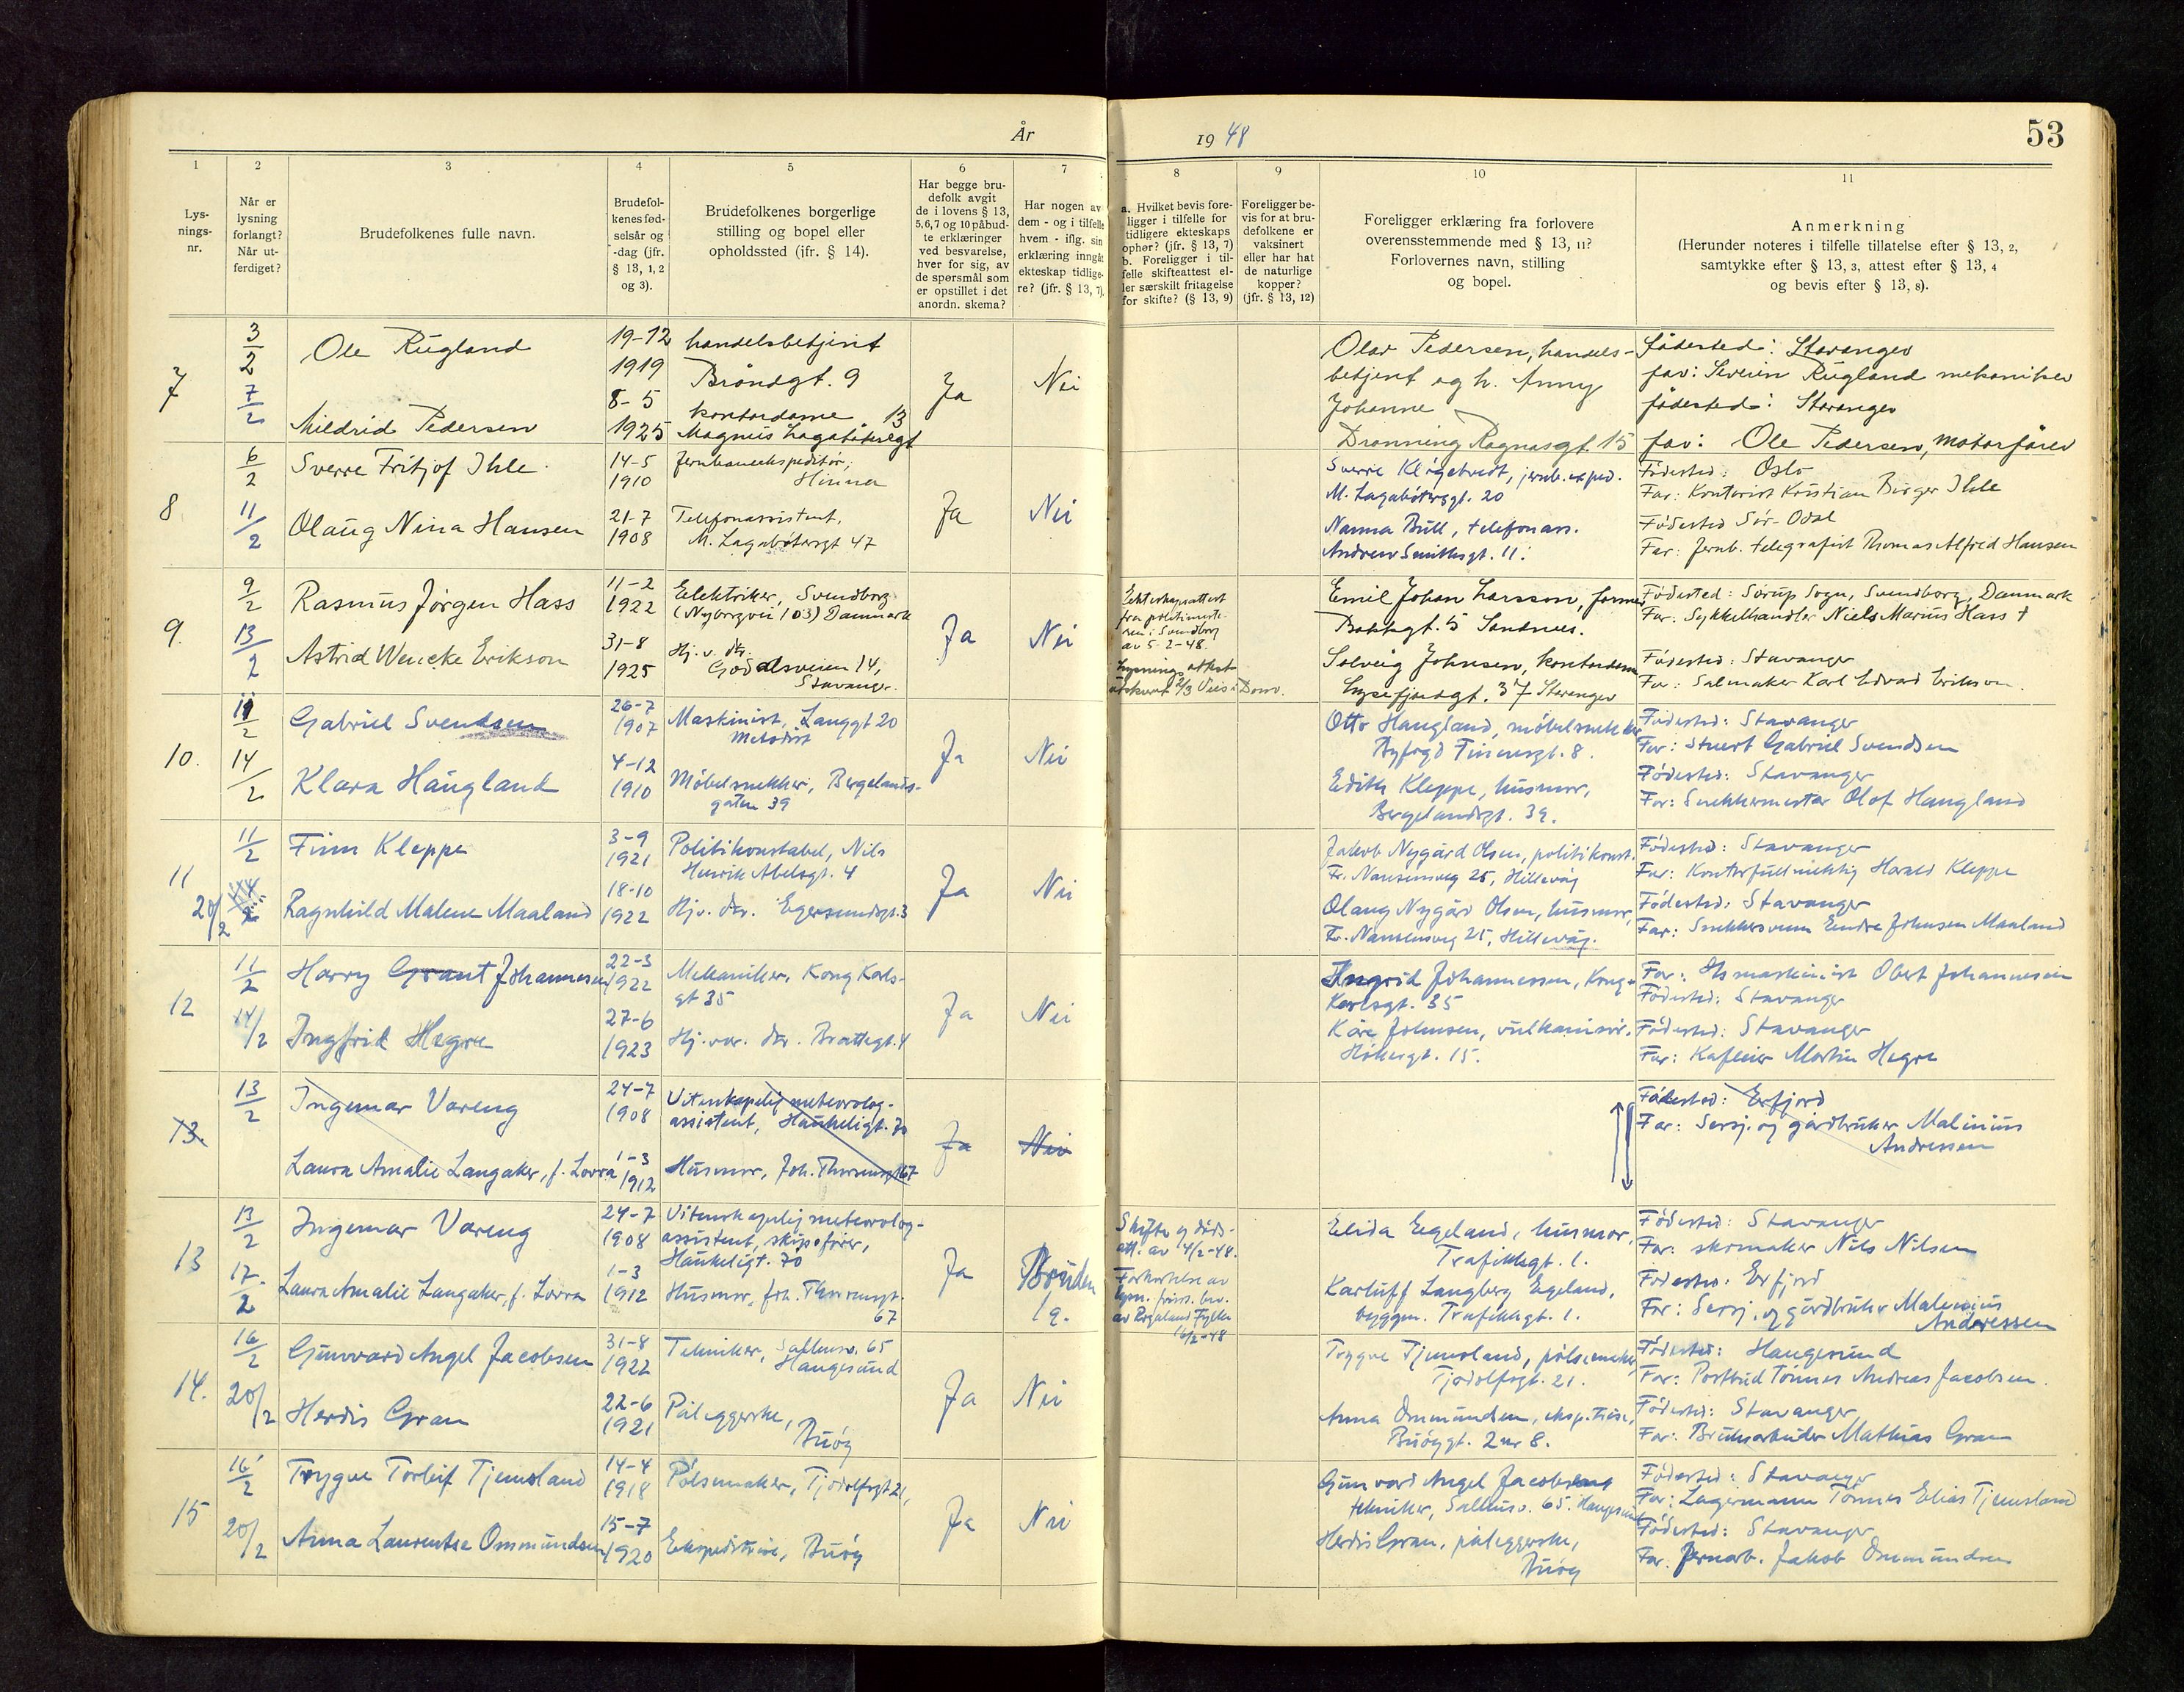 År 1948
53
1
Lysnings-
nr.
2
Når er
lysning
forlangt?
Når ut-
ferdiget?
3
Brudefolkenes fulle navn.
4
Brudefol-
kenes fød-
selsår og
-dag (jfr.
§ 13, 1, 2
og 3).
5
Brudefolkenes borgerlige
stilling og bopel eller
opholdssted (jfr. § 14).
6
Har begge bru-
defolk avgit
de i lovens § 13,
5,6,7 og 10 påbud-
te erklæringer
ved besvarelse,
hver for sig, av
de spørsmål som
er opstillet i det
anordn. skema?
7
Har nogen av
dem - og i tilfelle
hvem - iflg. sin
erklæring inngåt
ekteskap tidlige-
re? (jfr. § 13, 7).
8
a. Hvilket bevis fore-
ligger i tilfelle for
tidligere ekteskaps
ophør? (jfr. § 13, 7)
b. Foreligger i til-
felle skifteattest el-
ler særskilt fritagelse
for skifte? (§ 13, 9)
9
Foreligger be-
vis for at bru-
defolkene er
vaksinert
eller har hat
de naturlige
kopper?
(jfr. § 13, 12)
10
Foreligger erklæring fra forlovere
overensstemmende med § 13, 11?
Forlovernes navn, stilling
og bopel.
11
Anmerkning
(Herunder noteres i tilfelle tillatelse efter § 13, 2,
samtykke efter § 13, 3, attest efter § 13, 4
og bevis efter § 13, 8).
7
3/2
7/2
Ole Rugland
19-12
1919
handelsbetjent
Brøndgt. 9
Mildrid Pedersen
8-5
1925
kontordame
Magnus Lagabøtersgt 13
Ja
Nei
Olav Pedersen, handels-
betjent og h. Anny
Johanne
Dronning Ragnasgt. 15
fødested: Stavanger
far: Severin Rugland mekaniker
fødested: Stavanger
far: Ole Pedersen, motorfører
8
6/2
11/2
Sverre Fritjof Ihle
14-5
1910
Jernbaneekspeditør,
Hinna
Olaug Nina Hansen
21-7
1908
Telefonassistent,
M. Lagabøtersgt 47
Ja
Nei
Sverre Kløgetvedt, jernb.exped.
M. Lagabøtersgt. 20
Nanna Bull, telefonass.
Andrew Smithsgt. 11.
Fødested: Oslo
Far: Kontorist Kristian Birger Ihle
Fødested Sør-Odal
Far: Jernb. telegrafist Thomas Alfred Hansen
9.
9/2
13/2
Rasmus Jørgen Hass
11-2
1922
Elektriker, Svendborg
(Nyborgvei 103) Danmark
Astrid Wencke Erikson
31-8
1925
Hj. v. dtr.
Godalsveien 14,
Stavanger.
Ja
Nei
Ekteskapsattest
fra politimeste-
ren i Svendborg
av 5-2-48.
Lysnings attest
utskrevet 2/3 Vies i Domk.
Emil Johan Larsson, former
Bakkgt. 5 Sandnes.
Solveig Johnsen, kontordame
Lysefjordgt. 37 Stavanger
Fødested: Sørup Sogn, Svendborg, Danmark
Far: Sykkelhandler Niels Marius Hass †
Fødested: Stavanger
Far: Salmaker Karl Edvard Erikson.
10.
11/2
14/2
Gabriel Svendsen
26-7
1907
Maskinist, Langgt 20
Metodist
Klara Haugland
4-12
1910
Møbelsnekker, Bergelands-
gaten 39
Ja
Nei
Otto Haugland, møbelsnekker
Byfogd Finnesgt. 8.
Edith Kleppe, husmor,
Bergelandsgt. 39.
Fødested: Stavanger
Far: Stuert Gabriel Svendsen
Fødested: Stavanger
Far: Snekkermester Olof Haugland
11
11/2
20/2
Finn Kleppe
3-9
1921
Politikonstabel, Nils
Henrik Abelsgt. 4
Ragnhild Malene Maaland
18-10
1922
Hjv. dtr. Egersundsgt. 3
Ja
Nei
Jakob Nygård Olsen, politikonst.
Fr. Nansensveg 25, Hillevåg
Olaug Nygård Olsen, husmor,
Fr. Nansensveg 25, Hillevåg.
Fødested: Stavanger
Far: Kontorfullmektig Harald Kleppe
Fødested: Stavanger
Far: Snekkersvenn Endre Johnsen Maaland
12
11/2
14/2
Harry Grant Johannesen
22-3
1922
Mekaniker, Kong Karls-
gt 35
Ingfrid Hegre
27-6
1923
Hj. vær. dtr. Brattegt. 4
Ja
Nei
Ingrid Johannessen, Kong-
Karlsgt. 35
Kåre Johnsen, vulkanisør.
Høkergt. 15.
Far: Hj.maskinist Obert Johannesen
Fødested: Stavanger
Fødested: Stavanger
Far: Kafeeier Martin Hegre
13.
13/2
Ingemar Vareng
24-7
1908
Vitenskapelig meteorolog-
assistent, Haukeligt. 70
Laura Amalie Langaker, f. Lovra
1-3
1912
Husmor, Joh. Thorsensgt 67
Ja
Nei
Fødested: Erfjord
Far: Sersj. og gårdbruker Malinius
Andressen
13
13/2
17/2
Ingemar Vareng
24-7
1908
Vitenskapelig meteorolog-
assistent, skipsfører,
Haukeligt. 70
Laura Amalie Langaker, f. Lovra
1-3
1912
Husmor, Joh. Thorsensgt.
67
Ja
Bruden
1 g.
Skifte og døds-
att. av 4/2-48.
Forkortelse av
lysn. friss. bev.
av Rogaland Fylke
16/2-48
Elida Egeland, husmor,
Trafikkgt. 1.
Karluff Langberg Egeland,
byggm. Trafikkgt. 1.
Fødested: Stavanger
Far: skomaker Nils Nilsen
Fødested: Erfjord
Far: Sersj. og gårdbruker Malenius
Anderessen
14.
16/2
20/2
Gunvard Angel Jacobsen
31-8
1922
Tekniker, Salhusv. 65
Haugesund
Herdis Gran
22-6
1921
Påleggerske,
Buøy
Ja
Nei
Trygve Tjemsland, pølsemaker
Tjodolfsgt. 21.
Anna Ommundsen, eksp.trise,
Buøygt. 2 nr 8.
Fødested: Haugesund
Far: Postbud Tønnes Andreas Jacobsen.
Fødested: Stavanger
Far: Bruksarbeider Mathias Gran
15
16/2
20/2
Trygve Torleif Tjemsland
14-4
1918
Pølsemaker, Tjodolfsgt 21,
Anna Laurentse Ommundsen
15-7
1920
Ekspeditrise, Buøy
Ja
Nei
Gunvard Angel Jacobsen
tekniker, Salhusv. 65. Haugesund
Herdis Gran, påleggerske,
Buøy
Fødested: Stavanger
Far: Lagermann Tønnes Elias Tjemsland
Fødested: Stavanger
Far: Jernarb. Jakob Ommundsen